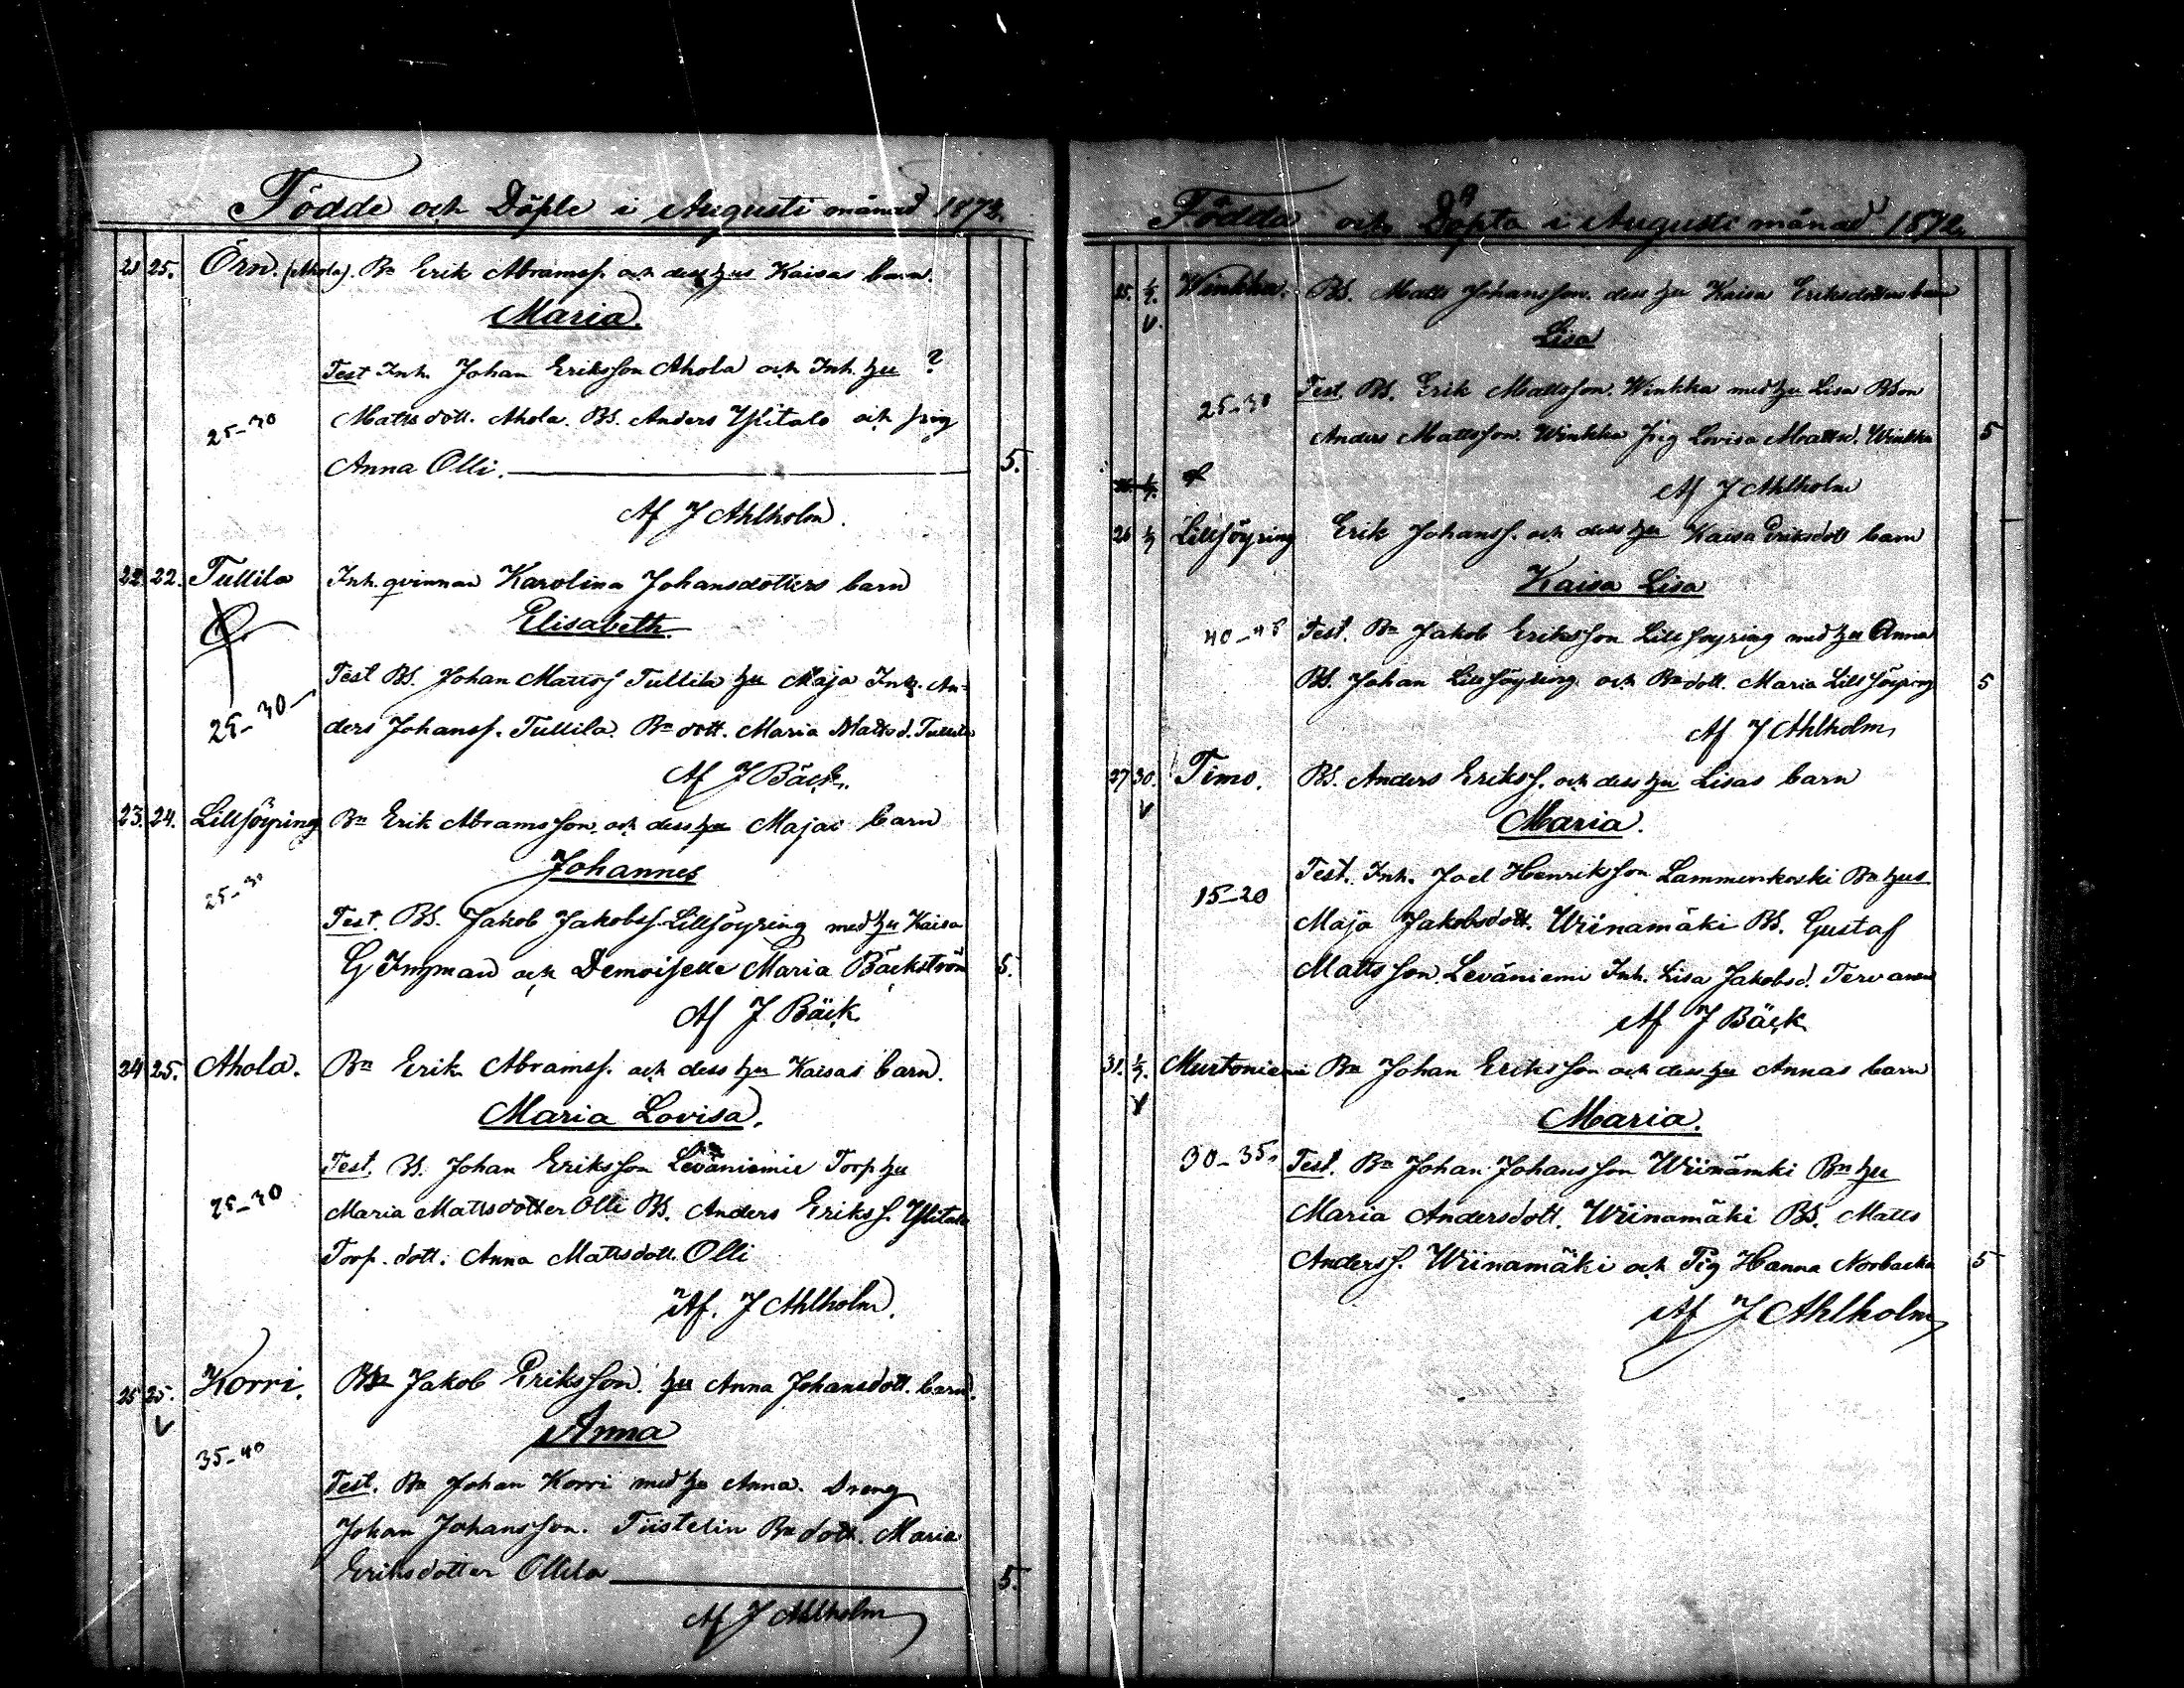 Födde och Döpte i Augusti månad 1872.
21 25. Örn. (Ahola). Bn Erik Abramss. och dess hus Kaisas barn.
Maria.
Test Inh. Johan Eriksson Ahola och Inh. hu ?
25-30 Matts dott. Ahola. BS. Anders Ylitalo och pig
Anna Olli. 5.
Af J Ahlholm.
22. 22. Tullila Inh. qvinnan Karolina Johansdotters barn
Elisabeth.
Test BS. Johan Mattss Tullila hu Maja Inh. An-
25-30 ders Johanss. Tullila. Bn dott. Maria Matts d. Tullila
Af J Bäck.
23. 24. Lillsöyring Bn Erik Abramsson och dess hu Majas barn
Johannes
25-30
Test. BS. Jakob Jakobss. Lillsöyring med hu Kaisa
G Ingman och Demoiselle Maria Bäckström 5.
Af J Bäck
24 25. Ahola. Bn Erik Abramss. och dess hu Kaisas barn.
Maria Lovisa.
Test. BS. Johan Eriksson Leväniemie Torp hu
25-30 Maria Mattsdotter Olli BS. Anders Erikss. Ylitalo
Torp. dott. Anna Mattsdott. Olli
Af. J Ahlholm.
25 25. Korri. Jakob Eriksson. hu Anna Johansdott. barn.
V Anna
35-40
Test. Bn Johan Korri med hu Anna. Dreng
Johan Johansson. Tiistelin Bn dott. Maria
Eriksdotter Ollila 5.
Af J Ahlholm
Födda och Döpta i Augusti månad 1872.
25. 1/9. Winkka. BS. Matts Johansson. dess hu Kaisa Eriksdotters barn
V. Lisa
25-30 Test. BS. Erik Mattsson. Winkka med hu Lisa BSon
Anders Mattsson. Winkka Pig Lovisa Mattsd. Winkka 5
Af J Ahlholm
26 1/9 Lillsöyring Erik Johanss. och dess hu Kaisa Eriksdott barn
Kaisa Lisa
40-45 Test. Bn Jakob Eriksson Lillsöyring med hu Anna
BS. Johan Lillsöyring och Bn dott. Maria Lillsöyring 5
Af J Ahlholm
27 30. Timo. BS. Anders Erikss. och dess hu Lisas barn
V Maria.
15-20 Test. Inh. Joel Henriksson Lammenkoski Bn hus
Maja Jakobsdott. Wiinamäki BS. Gustaf
Mattsson. Leväniemi Inh. Lisa Jakobsd.
Af J Bäck
31. 1/9. Murtoniemi Bn Johan Eriksson och dess hu Annas barn
V Maria.
30-35 Test. Bn Johan Johansson Wiinämki Bn hu
Maria Andersdott. Wiinamäki BS. Matts
Anderss. Wiinamäki och Pig Hanna Norbacka 5
Af J Ahlholm